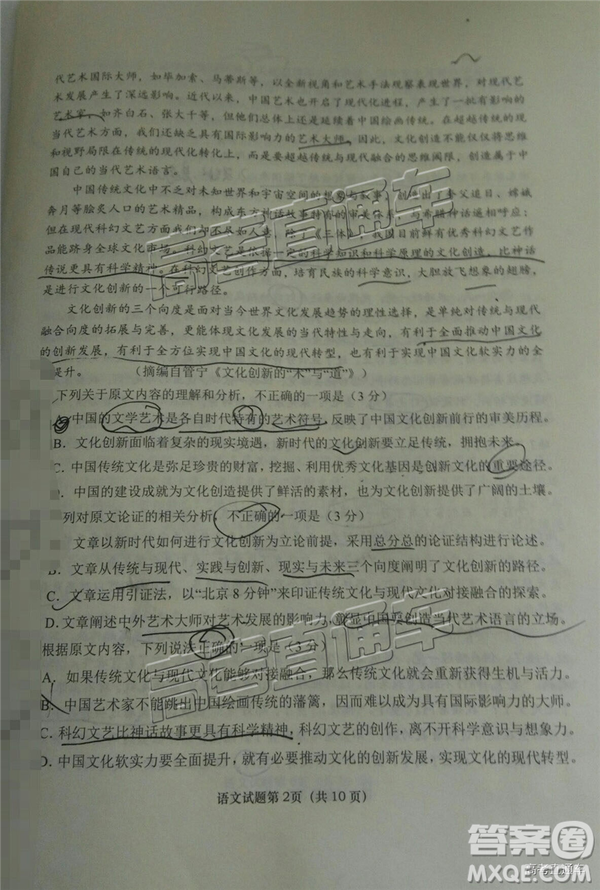 代艺术国际大师，如毕加索、马蒂斯等，以全新视角和艺术手法观察表现世界，对现代艺
术发展产生了深远影响。近代以来，中国艺术也开启了现代化进程，产生了一批有影响的
艺术家，如齐白石、张大千等，但总体上还是缺乏超越传统的现
当代艺术方面，我们还缺乏具有国际影响力的艺术大师。因此，文化创新不能仅仅将思维
和视野局限在传统的现代化转化上，而是要超越传统与现代融合的思维阈限，创造属于中
国自己的当代艺术语言。
中国传统文化中不乏对未知世界和宇宙空间的想象与故事，创造了夸父追日、嫦娥
奔月等脍炙人口的艺术精品，构成
但在现代科幻文艺方面却不及如人意。除了《三体》，我国目前鲜有优秀科幻文艺作
品能跻身全球文化市场。科幻文艺是依据一定的科学知识和科学原理的文化创造，比神话
传说更具有科学精神。在科幻文艺创作方面，培育民族的科学意识，大胆放飞想象的翅膀，
是进行文化创新的一个可行路径。
文化创新的三个向度是面对当今世界文化发展趋势的理性选择，是对单纯传统与现代
融合向度的拓展与完善，更能体现文化发展的当代特性与走向，有利于全面推动中国文化
的创新发展，有利于全方位实现中国文化的现代转型，也有利于实现中国文化软实力的全
提升。（摘编自管宁《文化创新的“术”与“道”》）
下列关于原文内容的理解和分析，不正确的一项是（3 分）
中国的文学艺术是各自时代特有的艺术符号，反映了中国文化创新前行的审美历程。
B．文化创新面临着复杂的现实境遇，新时代的文化创新要立足传统，拥抱未来。
C．中国传统文化是弥足珍贵的财富，挖掘、利用优秀文化基因是创新文化的重要途径。
D．中国的建设成就为文化创造提供了鲜活的素材，也为文化创新提供了广阔的土壤。
列对原文论证的相关分析，不正确的一项是（3 分）
文章以新时代如何进行文化创新为立论前提，采用总分总的论证结构进行论述。
B．文章从传统与现代、实践与创新、现实与未来三个向度阐明了文化创新的路径。
C．文章运用引证法，以“北京 8 分钟”来印证传统文化与现代对接融合的探索。
D．文章阐述中外艺术大师对艺术发展的影响力，意显中国要创造当代艺术语言的立场。
根据原文内容，下列说法正确的一项是（3 分）
A．如果传统文化与现代文化能够对接融合，那么传统文化就能重新获得生机与活力。
B．中国艺术家不能跳出中国绘画传统的藩篱，因而难以产生具有国际影响力的大师。
C．科幻文艺比神话故事更具有科学精神，科幻文艺的创作，离不开科学意识与想象力。
D．中国文化软实力要全面提升，就有必要推动文化的创新发展，实现文化的现代转型。
语文试题第 2页（共 10 页）
高考直通车
高考直通车
答案圈
MXQE.COM